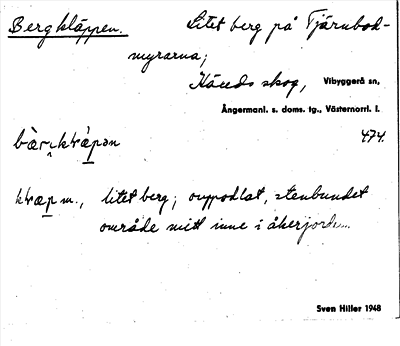 Bergkläppen. Litet berg på Tjärnbod-
myrarna;
skog, Vibyggerå sn,
Ångermanl. s. doms. tg., Västernorrl. l.
474.
litet berg; ouppodlat, stenbundet
område mitt inne i åkerjord...
Sven Hiller 1948